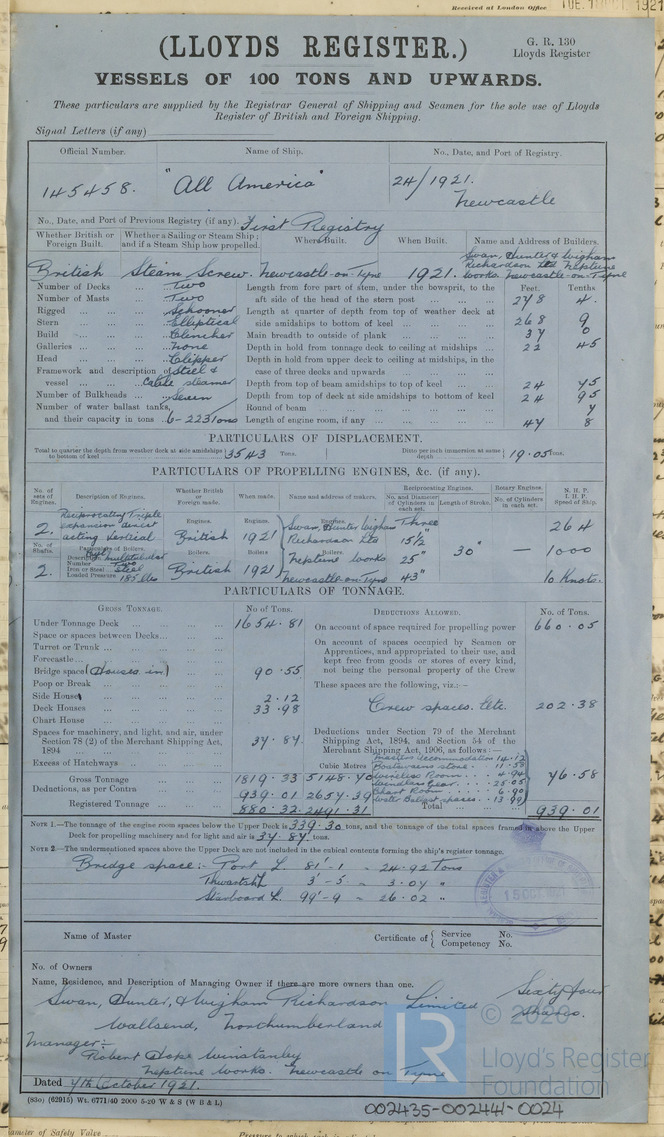 Received at London Office
TUE. 1
1921
(LLOYDS REGISTER.)
G. R. 130
Lloyds Register
VESSELS OF 100 TONS AND UPWARDS.
These particulars are supplied by the Registrar General of Shipping and Seamen for the sole use of Lloyds
Register of British and Foreign Shipping.
Signal Letters (if any)
Official Number. Name of Ship. No., Date, and Port of Registry.
145458. "All America" 24/1921.
Newcastle
No., Date, and Port of Previous Registry (if any). First Registry
Whether British or Foreign Built. Whether a Sailing or Steam Ship; and if a Steam Ship how propelled. Where Built. When Built. Name and Address of Builders.
British Steam Screw. Newcastle-on-Tyne 1921. Swan, Hunter & Wigham Richardson Ltd Neptune Works. Newcastle-on-Tyne
Number of Decks ... Two
Number of Masts ... Two
Rigged ... Schooner
Stern ... Elliptical
Build ... Clencher
Galleries ... None
Head ... Clipper
Framework and description of vessel ... Steel & Cable steamer
Number of Bulkheads ... Seven
Number of water ballast tanks, and their capacity in tons 6 - 223 tons
Feet. Tenths
Length from fore part of stem, under the bowsprit, to the aft side of the head of the stern post ... 278 4.
Length at quarter of depth from top of weather deck at side amidships to bottom of keel ... 268 9
Main breadth to outside of plank ... 37 0
Depth in hold from tonnage deck to ceiling at midships ... 22 45
Depth in hold from upper deck to ceiling at midships, in the case of three decks and upwards ...
Depth from top of beam amidships to top of keel ... 24 45
Depth from top of deck at side amidships to bottom of keel 24 95
Round of beam ... 4
Length of engine room, if any ... 47 8
PARTICULARS OF DISPLACEMENT.
Total to quarter the depth from weather deck at side amidships to bottom of keel 3543 Tons. Ditto per inch immersion at same depth 19.05 Tons.
PARTICULARS OF PROPELLING ENGINES, &c. (if any).
No. of sets of Engines. Description of Engines. Whether British or Foreign made. When made. Name and address of makers. Reciprocating Engines. No. and Diameter of Cylinders in each set. Length of Stroke. Rotary Engines. No. of Cylinders in each set. N.H.P. I.H.P. Speed of Ship.
2. Reciprocating Triple expansion direct acting vertical Engines. British Engines. 1921 Engines. Swan, Hunter Wigham Richardson Ltd Three 15½" 25" 43" 30" — 264
No. of Shafts. Particulars of Boilers. Boilers. Boilers Boilers Neptune Works 1000
2. Description Multitubular
Number Two
Iron or Steel Steel
Loaded Pressure 185 lbs British 1921 Newcastle-on-Tyne 10 Knots.
PARTICULARS OF TONNAGE.
GROSS TONNAGE. No. of Tons. DEDUCTIONS ALLOWED. No. of Tons.
Under Tonnage Deck ... 1654.81
Space or spaces between Decks...
Turret or Trunk ...
Forecastle...
Bridge space (Houses in) 90.55
Poop or Break ...
Side Houses 2.12
Deck Houses ... 33.98
Chart House ...
Spaces for machinery, and light, and air, under Section 78 (2) of the Merchant Shipping Act, 1894 ... 37.87
Excess of Hatchways ...
Gross Tonnage 1819.33 5148.70
Deductions, as per Contra 939.01 2657.39
Registered Tonnage ... 880.32 2491.31
Cubic Metres
On account of space required for propelling power 660.05
On account of spaces occupied by Seamen or Apprentices, and appropriated to their use, and kept free from goods or stores of every kind, not being the personal property of the Crew
These spaces are the following, viz.:—
Crew spaces. Etc. 202.38
Deductions under Section 79 of the Merchant Shipping Act, 1894, and Section 54 of the Merchant Shipping Act, 1906, as follows:—
Masters Accommodation 14.12
Boatswains store. 11.58
Wireless Room .. 4.94
Windlass Gear. 25.05
Chart Room .. 6.90
Water Ballast spaces. 13.99
76.58
Total ... 939.01
NOTE 1.—The tonnage of the engine room spaces below the Upper Deck is 339.30 tons, and the tonnage of the total spaces framed in above the Upper
Deck for propelling machinery and for light and air is 37.87 tons.
NOTE 2.—The undermentioned spaces above the Upper Deck are not included in the cubical contents forming the ship's register tonnage.
Bridge space:- Port L. 81'-1 = 24.92 Tons
Thwartsh L 3'-5 = 3.07 "
Starboard L. 99'-9 = 26.02 "
15 OCT
Name of Master Certificate of { Service No. Competency No.
No. of Owners
Name, Residence, and Description of Managing Owner if there are more owners than one.
Swan, Hunter, & Wigham Richardson Limited Sixty four
Wallsend, Northumberland Shares.
Manager:-
Robert Hope Winstanley
Neptune Works. Newcastle on Tyne
Dated 7th October 1921.
(830) (62915) Wt. 6771/40 2000 5-20 W & S (W B & L)
002435-002444-0024
LR © 2020
Lloyd's Register
Foundation
Pressure to which